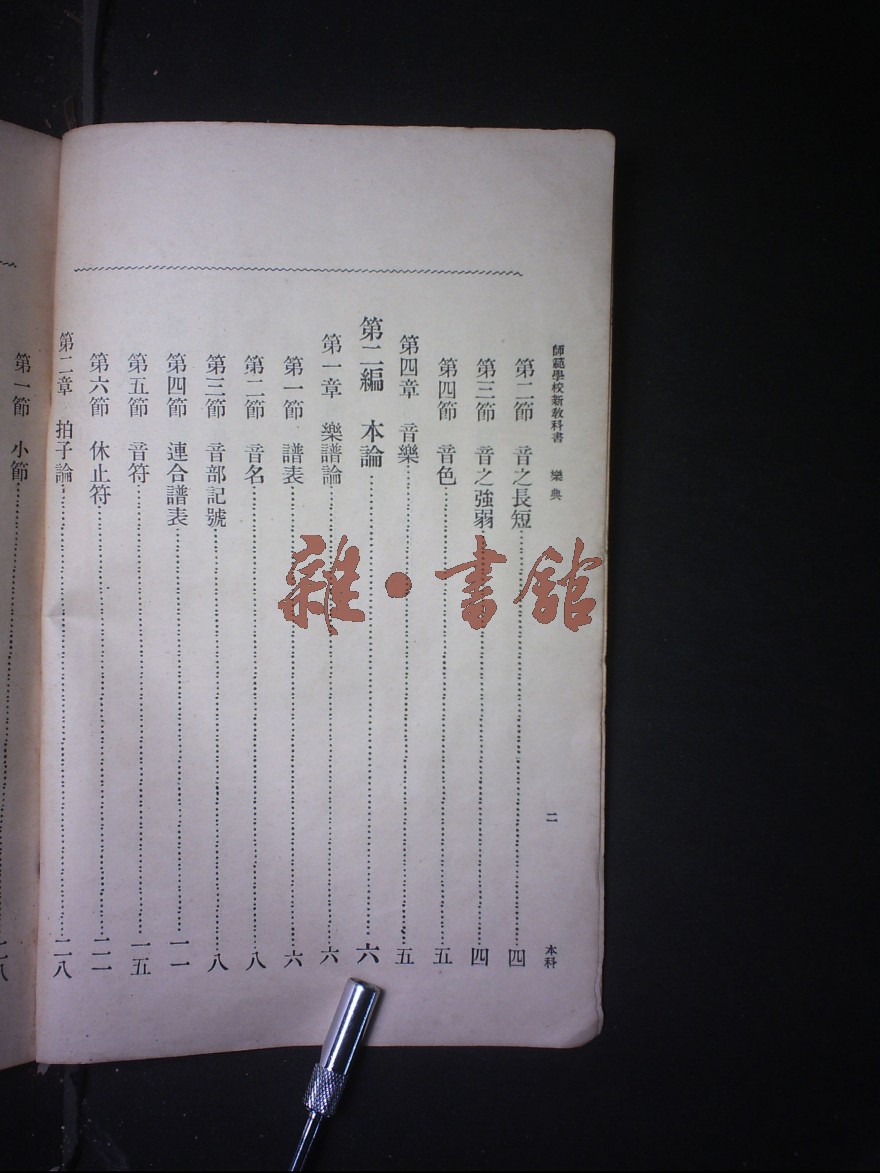 師範學校新教科書 樂典 二 本科
第二節 音之長短 四
第三節 音之強弱 四
第四節 音色 五
第四章 音樂 五
第二編 本論 六
第一章 樂譜論 六
第一節 譜表 六
第二節 音名 八
第三節 音部記號 八
第四節 連合譜表 一一
第五節 音符 一五
第六節 休止符 二一
第二章 拍子論 二八
第一節 小節 二八
雜·書館